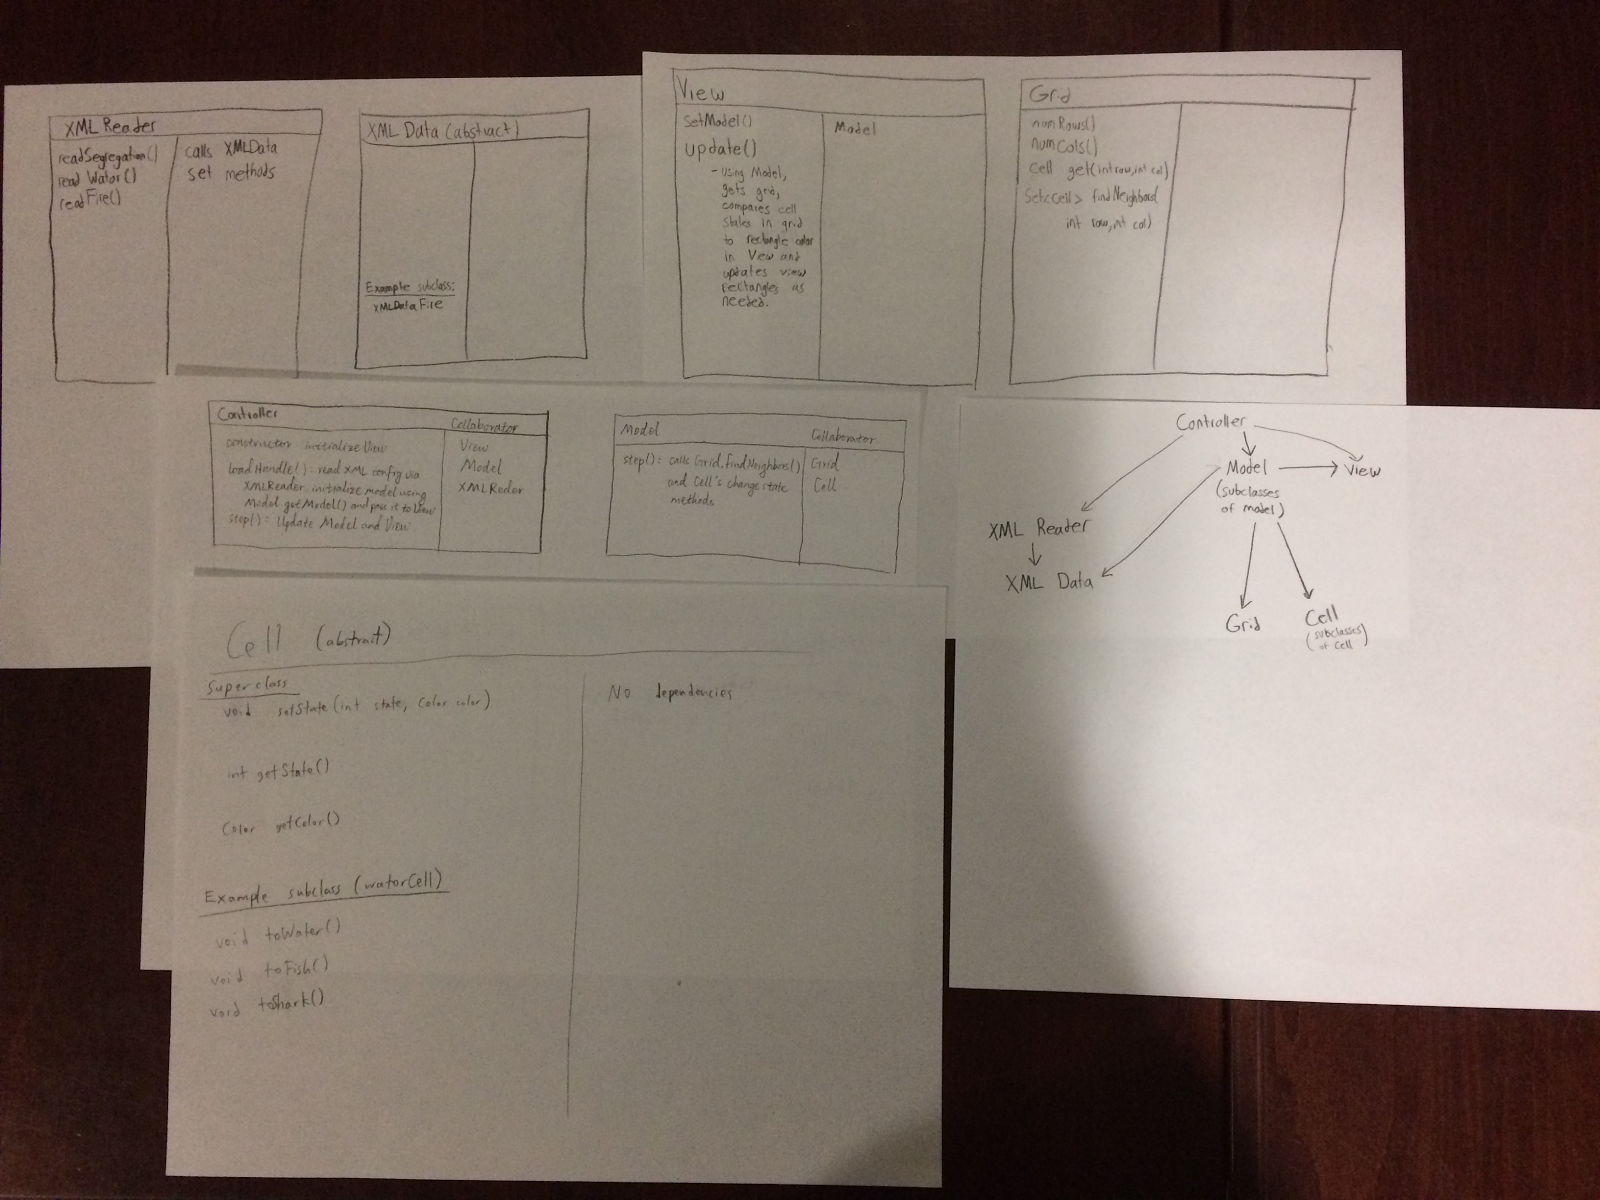 XML Reader
readSegregation()
read Wator()
readFire()
calls XMLData
set methods
XML Data (abstract)
Example subclass:
XMLData Fire
View
setModel()
update()
- Using Model,
gets grid,
compares cell
states in grid
to rectangle color
in View and
updates view
rectangles as
needed.
Model
Grid
numRows()
numCols()
Cell get(int row, int col)
Set<Cell> findNeighbors(
int row, int col)
Controller
Collaborator
constructor initialize View
loadHandle(): read XML config via
XMLReader, initialize model using
Model getModel() and pass it to View
step(): Update Model and View
View
Model
XMLReder
Model
Collaborator
step(): calls Grid.findNeighbors()
and Cell's change state
methods
Grid
Cell
Controller
Model
(subclasses
of model)
View
XML Reader
XML Data
Grid
Cell
(subclasses
of Cell)
Cell (abstract)
Superclass
void setState(int state, Color color)
int getState()
Color getColor()
Example subclass (watorCell)
void toWater()
void toFish()
void toShark()
No dependencies